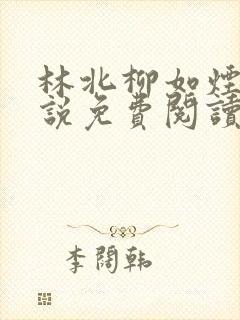 林北柳如煙
說免費閱讀
李闊韩